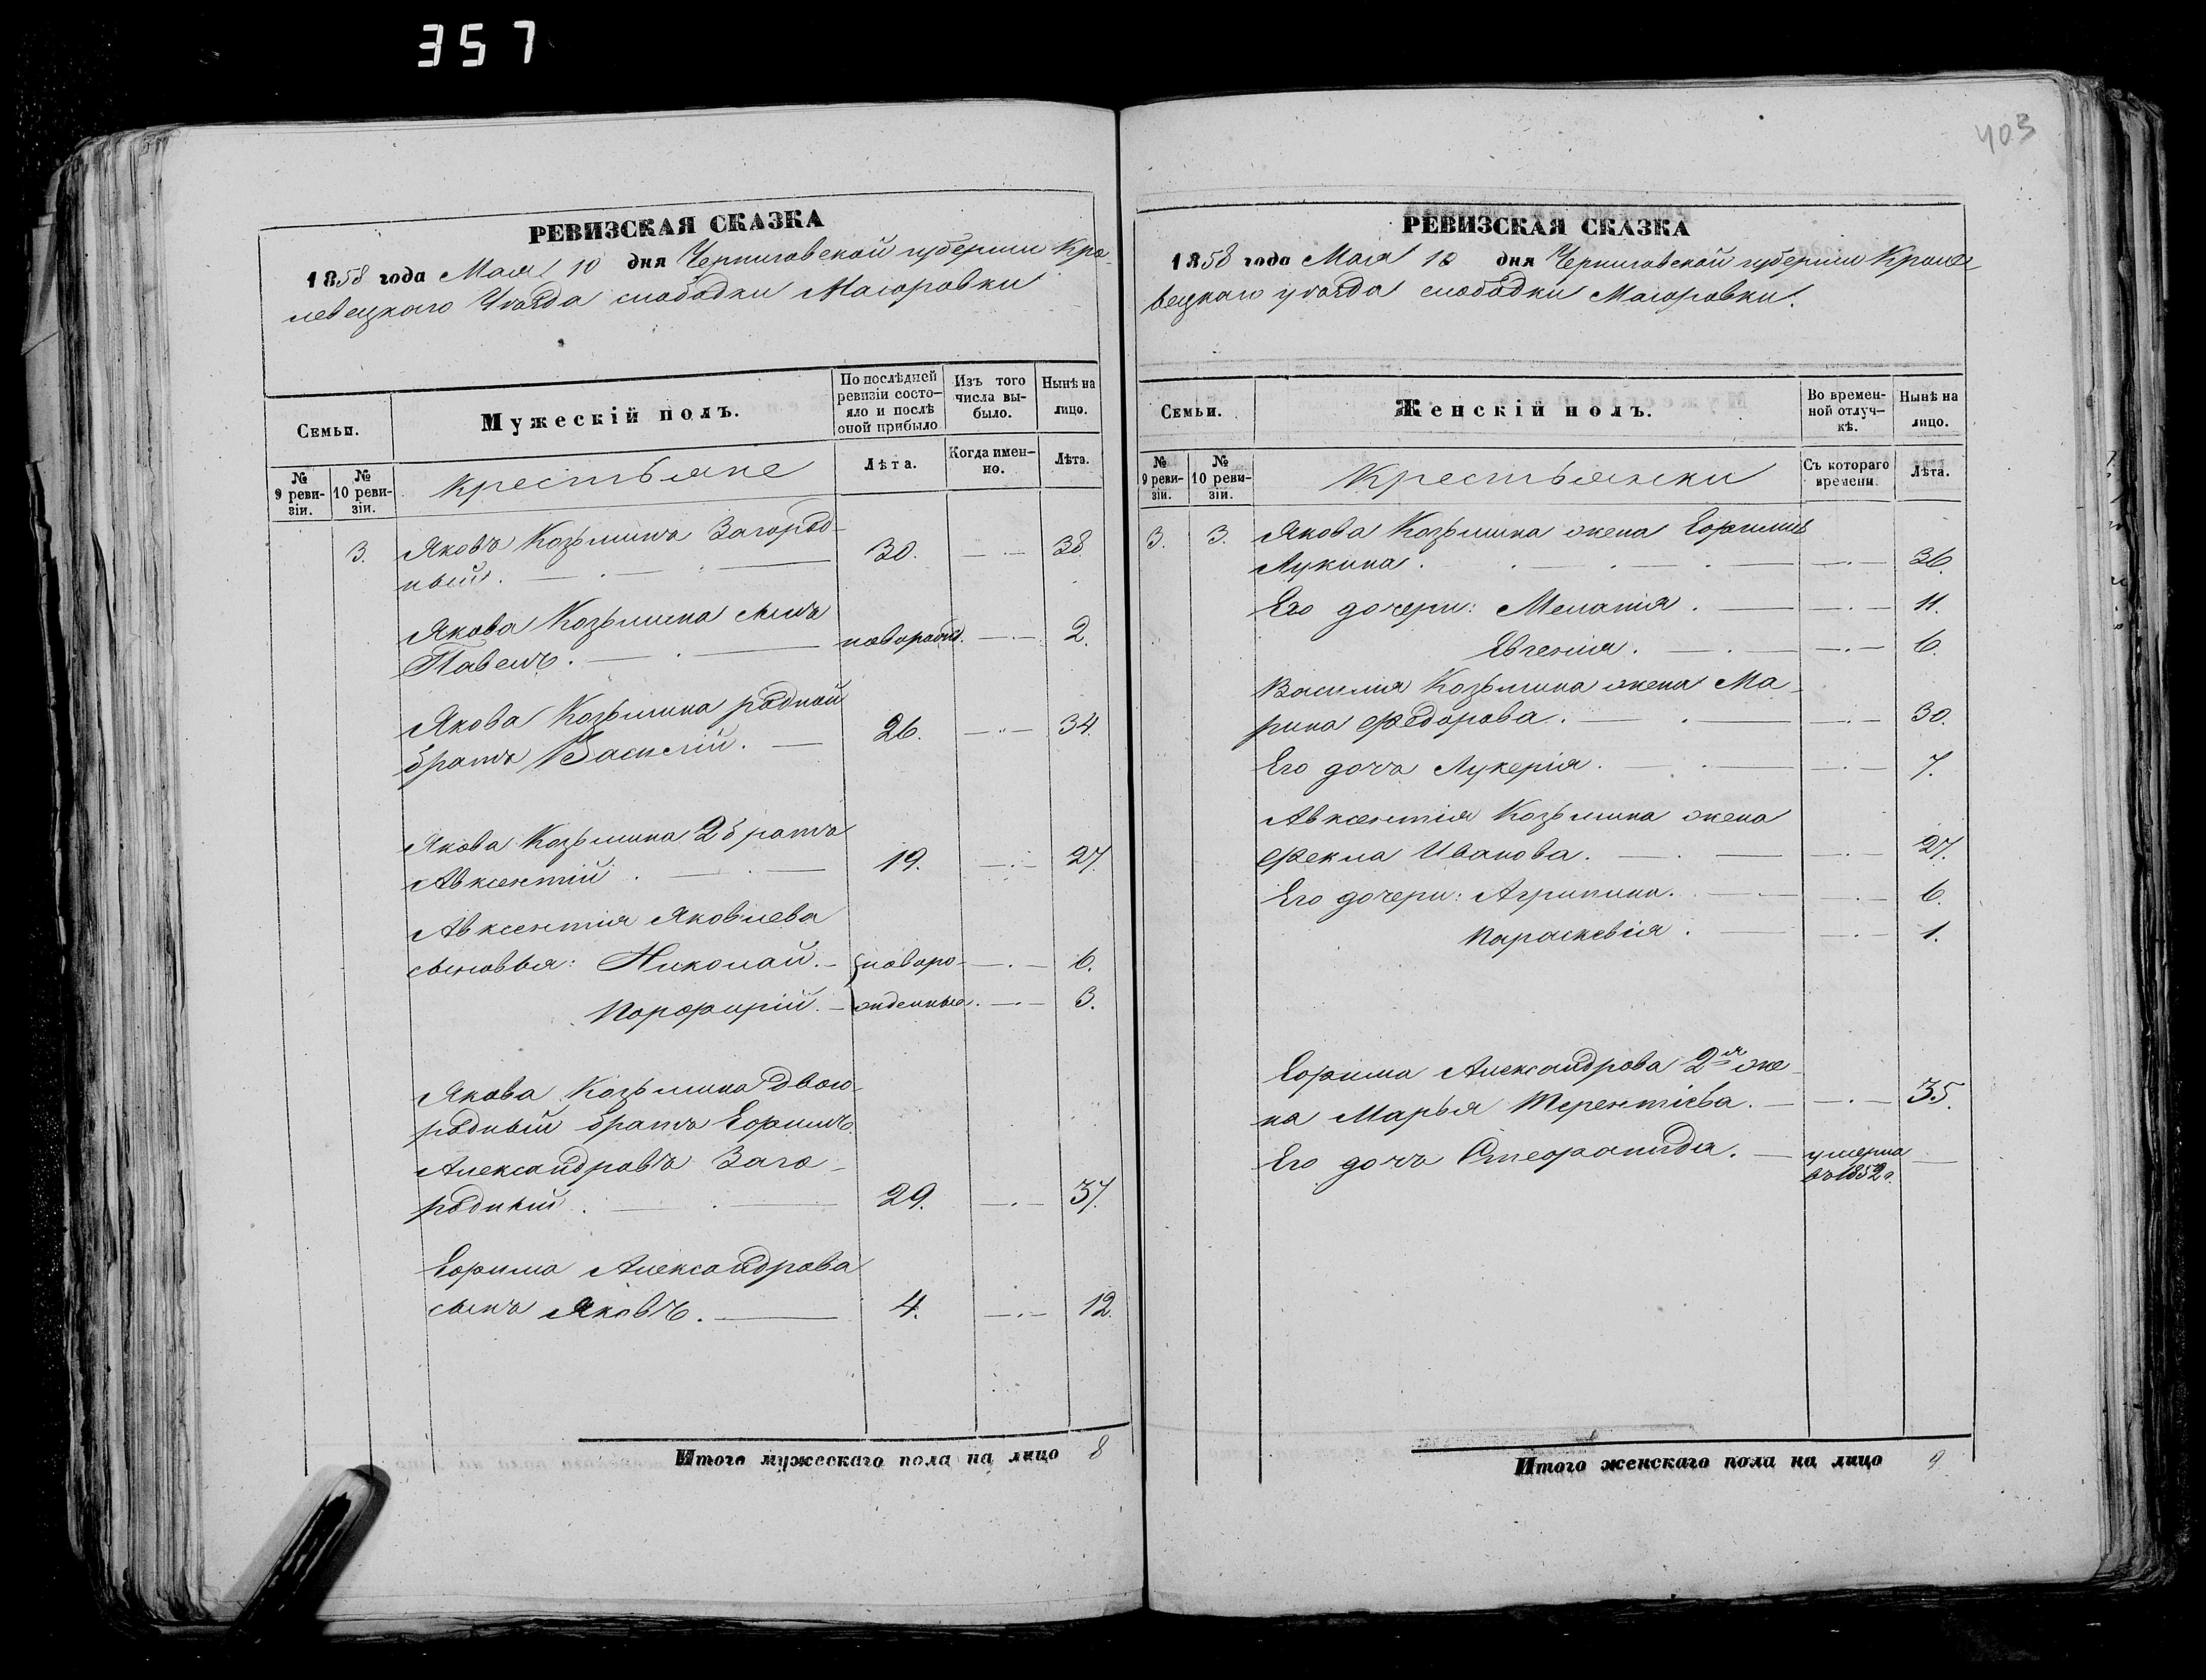 357
403
РЕВИЗСКАЯ СКАЗКА
1858 года Мая 10 дня Черниговской губернии Кро-
левецкаго Уѣзда слободки Маюровки
Семьи.
Мужескій полъ.
По послѣдней ревизіи состо-
яло и послѣ оной прибыло
Изъ того числа вы-
было.
Нынѣ на лицо.
№ 9 реви-
зіи.
№ 10 реви-
зіи.
крестьяне
Лѣта.
Когда имен-
но.
Лѣта.
3. Яковъ Козьминъ Загород-
ный. 30. 38
Якова Козьмина сынъ
Павелъ. новорожд. 2.
Якова Козьмина родной
братъ Василій. 26. 34.
Якова Козьмина 2 братъ
Авксентій. 19. 27.
Авксентія Яковлева
сыновья: Николай. новоро- 6.
Порфирій. жденные. 3.
Якова Козьмина двою-
родный братъ Ефимъ
Александровъ Заго-
родный. 29. 37.
Ефима Александрова
сынъ Яковъ. 4. 12.
Итого мужескаго пола на лицо 8
РЕВИЗСКАЯ СКАЗКА
1858 года Мая 10 дня Черниговской губерніи Кроле-
вецкаго уѣзда слободки Маюровки.
Семьи.
Женскій полъ.
Во времен-
ной отлуч-
кѣ.
Нынѣ на лицо.
№ 9 реви-
зіи.
№ 10 реви-
зіи.
Крестьянки
Съ котораго времени.
Лѣта.
3. 3. Якова Козьмина жена Ефимія
Лукина. 36.
Его дочери: Меланія. 11.
Евгенія. 6.
Василія Козьмина жена Ма-
рина Федорова. 30.
Его дочь Лукерія. 7.
Авксентія Козьмина жена
Фекла Иванова. 27.
Его дочери: Агрипина. 6.
Параскевія. 1.
Ефима Александрова 2я же-
на Марья Терентіева. 35.
Его дочь Стефанида. умерла
въ 1852 г.
Итого женскаго пола на лицо 9